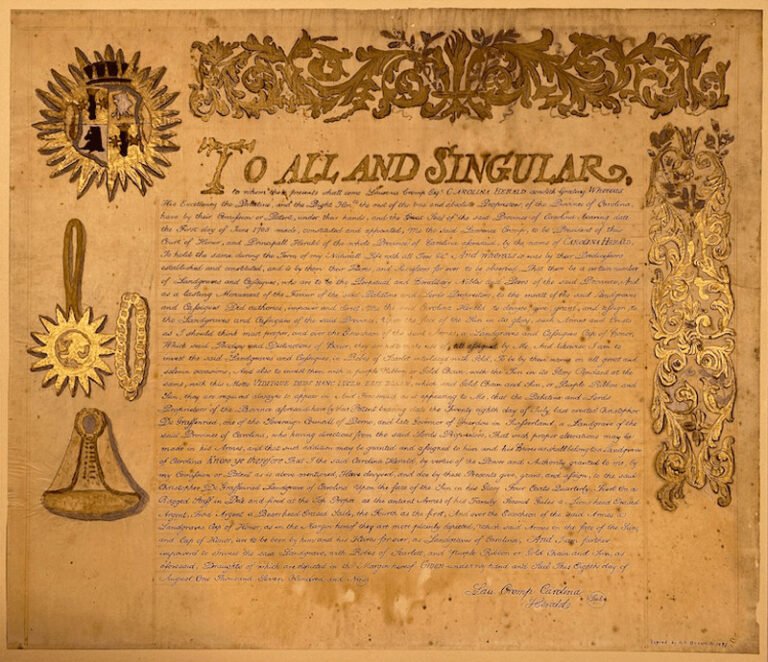 TO ALL AND SINGULAR.
to whom these presents shall come Laurence Cromp Esqr. CAROLINA HERALD sendeth Greeting WHEREAS
His Excellency the Palatine, and the Right Honble the rest of the true and absolute Proprietors of the Province of Carolina,
have by their Commission or Patent, under their hands, and the Great Seal of the said Province of Carolina bearing date
the First day of June 1705 made, constituted and appointed, Me the said Laurence Cromp, to be President of this
Court of Honor, and Principall Herald of the whole Province of Carolina aforesaid, by the name of CAROLINA HERALD,
To hold the same during the Term of my Naturall Life with all Fees &c. And Whereas it was by their Predecessors
established and constituted, and is by them their Heirs, and Successors for ever to be observed, That there be a certain number
of Landgraves and Cassiques, who are to be the Perpetual and Hereditary Nobles and Peers of the said Province, And
as a lasting Monument of the Honour of the said Palatine and Lords Proprietors, to the merit of the said Landgraves
and Cassiques Did authorize, impower and direct Me the said Carolina Herald to devise, give, grant, and assign to
the Landgraves and Cassiques of the said Province, upon the face of the Sun in its glory such Arms and Crests
as I should think most proper, and over the of the said Arms, a Landgraves and Cassiques Cap of Honor,
Which said Badges and Distinctions of Honor, they all assigned by Me, And likewise I am to
invest the said Landgraves and Cassiques, in Robes of Scarlet interlaced with Gold, To be by them worn on all great and
solemn occasions, And also to invest them with a purple Ribbon or Gold Chain, with the Sun in its Glory Pendant at the
same, with this Motto which said Gold Chain and Sun, or Purple Ribbon and
Sun, they are required always to appear in And Forasmuch as it appearing to Me, that the Palatine and Lords
Proprietors of the Province aforesaid have by their Patent bearing date the Twenty eighth day of July last created Christopher
De Graffenried, one of the Sovereign Council of Berne, and late Governor of Yverdon in Switzerland, a Landgrave of the
said Province of Carolina, who having directions from the said Lords Proprietors, That such proper alterations may be
made in his Armes, and that such addition may be granted and assigned to him and his Heirs as shall belong to a Landgrave
of Carolina Know ye therefore That I the said Carolina Herald, by vertue of the Power and Authority granted to me, by
my Commission or Patent as is above mentioned, Have devised, and doe by these Presents give, grant, and assign, to the said
Christopher De Graffenried Landgrave of Carolina Upon the face of the Sun in his Glory Four Coats Quarterly, First Or a
Ragged Staff in and fired at the Top Proper as the antient Armes of his Family, Second Gules a Lyons head Erased
Argent, Third Argent a Bears head Erased Sable, the Fourth as the first, And over the of the said Armes a
Landgraves Cap of Honor, as in the Margin hereof they are more plainly depicted, which said Armes on the face of the Sun,
and Cap of Honor, are to be born by him and his Heirs for ever, as Landgraves of Carolina, And I am further
impowered to invest the said Landgrave, with Robes of Scarlet, and Purple Ribbon or Gold Chain and Sun, as
aforesaid, Draughts of which are depicted in the Margin hereof Given under my hand and Seal This Eighth day of
August One Thousand Seven Hundred and Nine
Lau Cromp Carolina
Herald